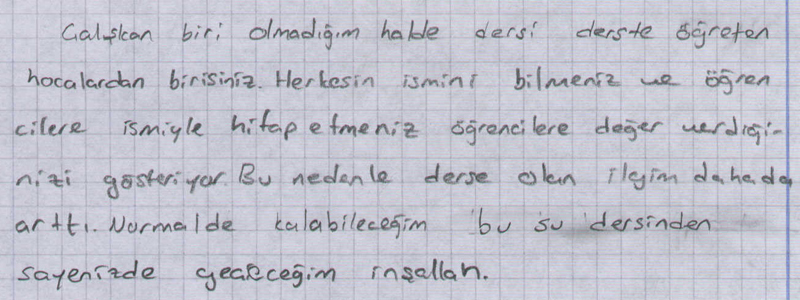 Çalışkan biri olmadığım halde dersi derste öğreten
hocalardan birisiniz. Herkesin ismini bilmeniz ve öğren
cilere ismiyle hitap etmeniz öğrencilere değer verdiği-
nizi gösteriyor. Bu nedenle derse olan ilgim dahada
arttı. Normalde kalabileceğim bu su dersinden
sayenizde geçeceğim inşallah.